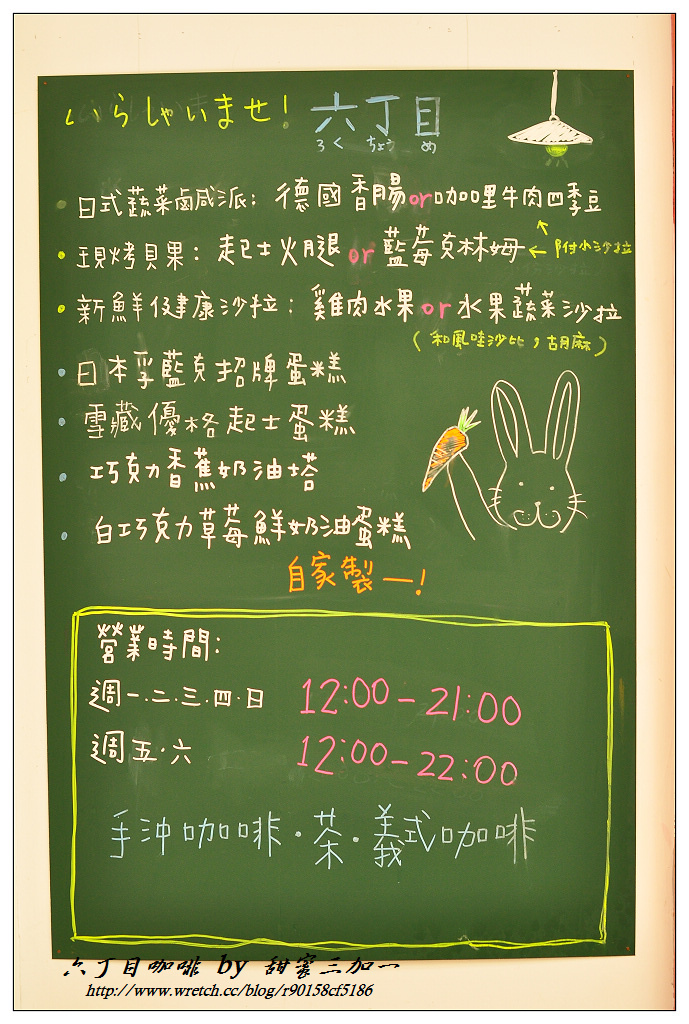 いらしゃいませ! 六丁目
ろく ちょう め
日式蔬菜鹹派: 德國香腸or咖哩牛肉四季豆
現烤貝果: 起士火腿or藍莓克林姆 ← 附小沙拉
新鮮健康沙拉: 雞肉水果or水果蔬菜沙拉
(和風哇沙比,胡麻)
日本乎藍克招牌蛋糕
雪藏優格起士蛋糕
巧克力香蕉奶油塔
白巧克力草莓鮮奶油蛋糕
自家製一!
營業時間:
週一.二.三.四.日 12:00-21:00
週五.六 12:00-22:00
手沖咖啡.茶.義式咖啡
六丁目咖啡 by 甜蜜三加一
http://www.wretch.cc/blog/r90158cf5186